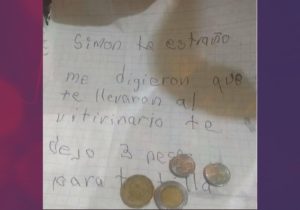 Simon te estraño
me digieron que
te llevaron al
vitirinario te
dejo 3 pe
para t